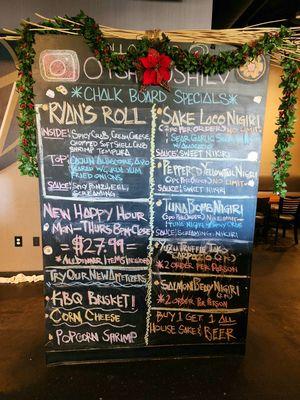 CHALK BOARD SPECIALS
RYAN'S ROLL
INSIDE: SPICY CRAB, CREAM CHEESE,
CHOPPED SOFT SHELL CRAB,
SHRIMP TEMPURA
TOP: CAJUN ALBACORE, AVO
FRIED ONIONS
SAUCE: SPICY PONZU, EEL
SCREAMING
NEW HAPPY HOUR
MON-THURS 8PM-CLOSE
$27.99
*ALL DINNER ITEMS INCLUDED
TRY OUR NEW APPETIZERS
BBQ BASKET!
CORN CHEESE
POPCORN SHRIMP
SAKE LOCO NIGIRI
(2PC PER ORDER) NO LIMIT
SEAR GARLIC
W/ AVOCADO
SAUCE: SWEET NIKIRI
PEPPER YELLOWTAIL NIGIRI
NO LIMIT
SAUCE: SWEET NIKIRI
TUNA BOMB NIGIRI
(2PC PER ORDER) NO LIMIT
SAUCE: SCREAMING, NIKIRI
YUZU TRUFFLE TAKO
CARPACCIO
*2 ORDER PER PERSON
SALMON BELLY NIGIRI
*2 ORDER PER PERSON
BUY 1 GET 1 ALL
HOUSE SAKE & BEER